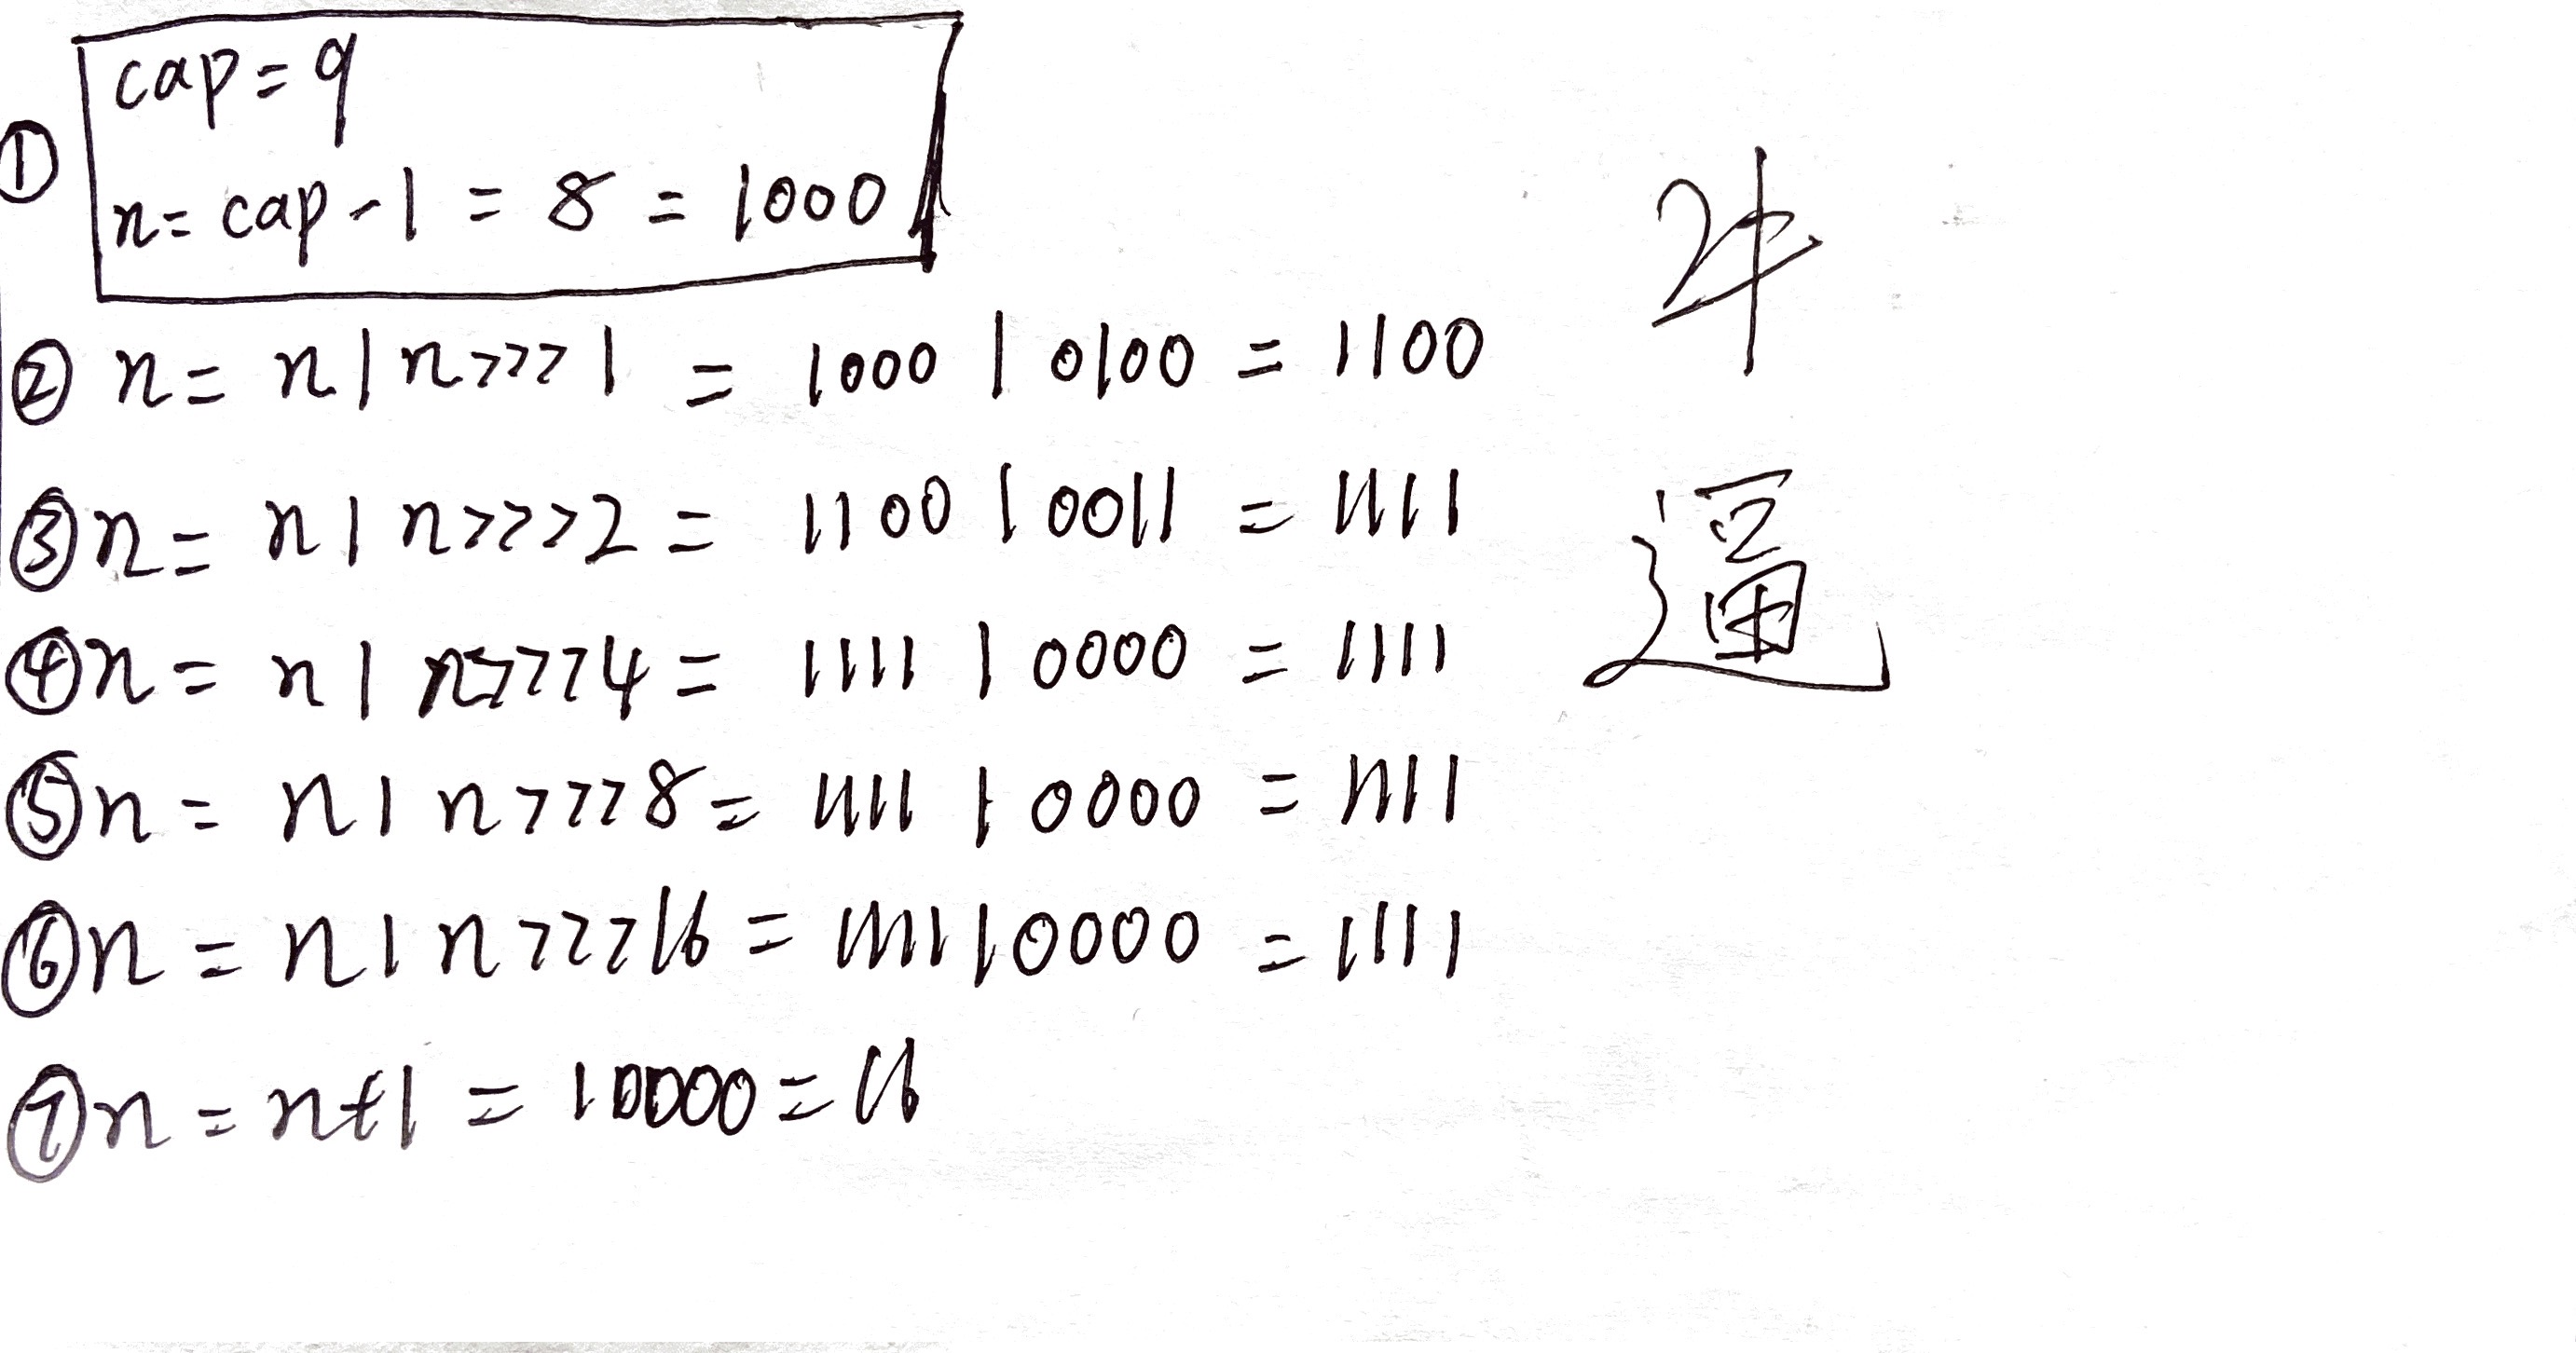 cap = 9
① n = cap - 1 = 8 = 1000
② n = n | n >>> 1 = 1000 | 0100 = 1100
③ n = n | n >>> 2 = 1100 | 0011 = 1111
④ n = n | n >>> 4 = 1111 | 0000 = 1111
⑤ n = n | n >>> 8 = 1111 | 0000 = 1111
⑥ n = n | n >>> 16 = 1111 | 0000 = 1111
⑦ n = n + 1 = 10000 = 16
牛
逼